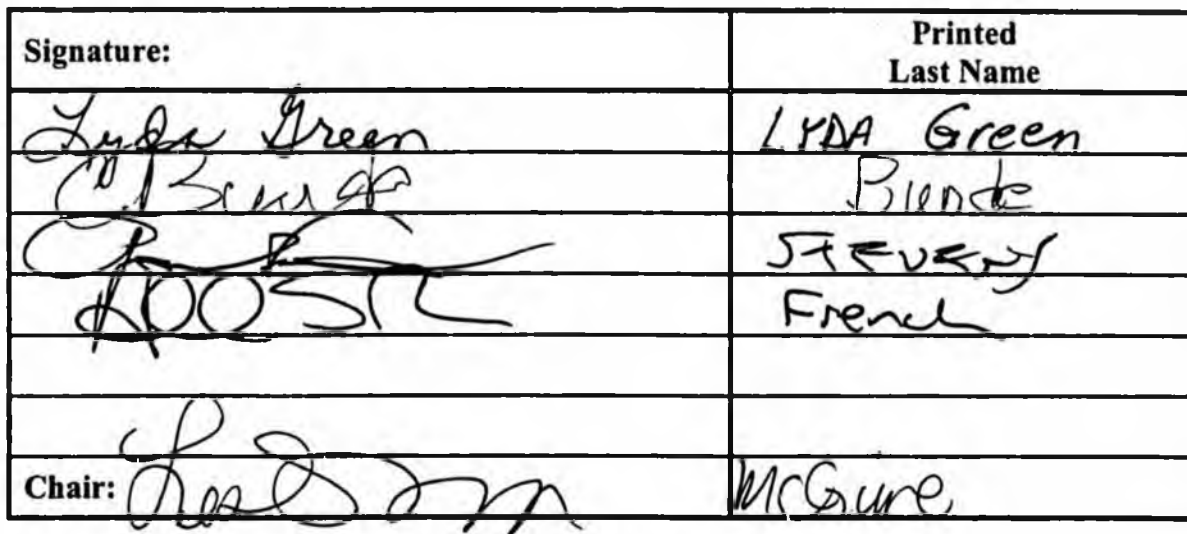 Signature: Printed
Last Name
Lyda Green LYDA Green
C. Bunde Bunde
STEVENS
French
Chair: McGuire